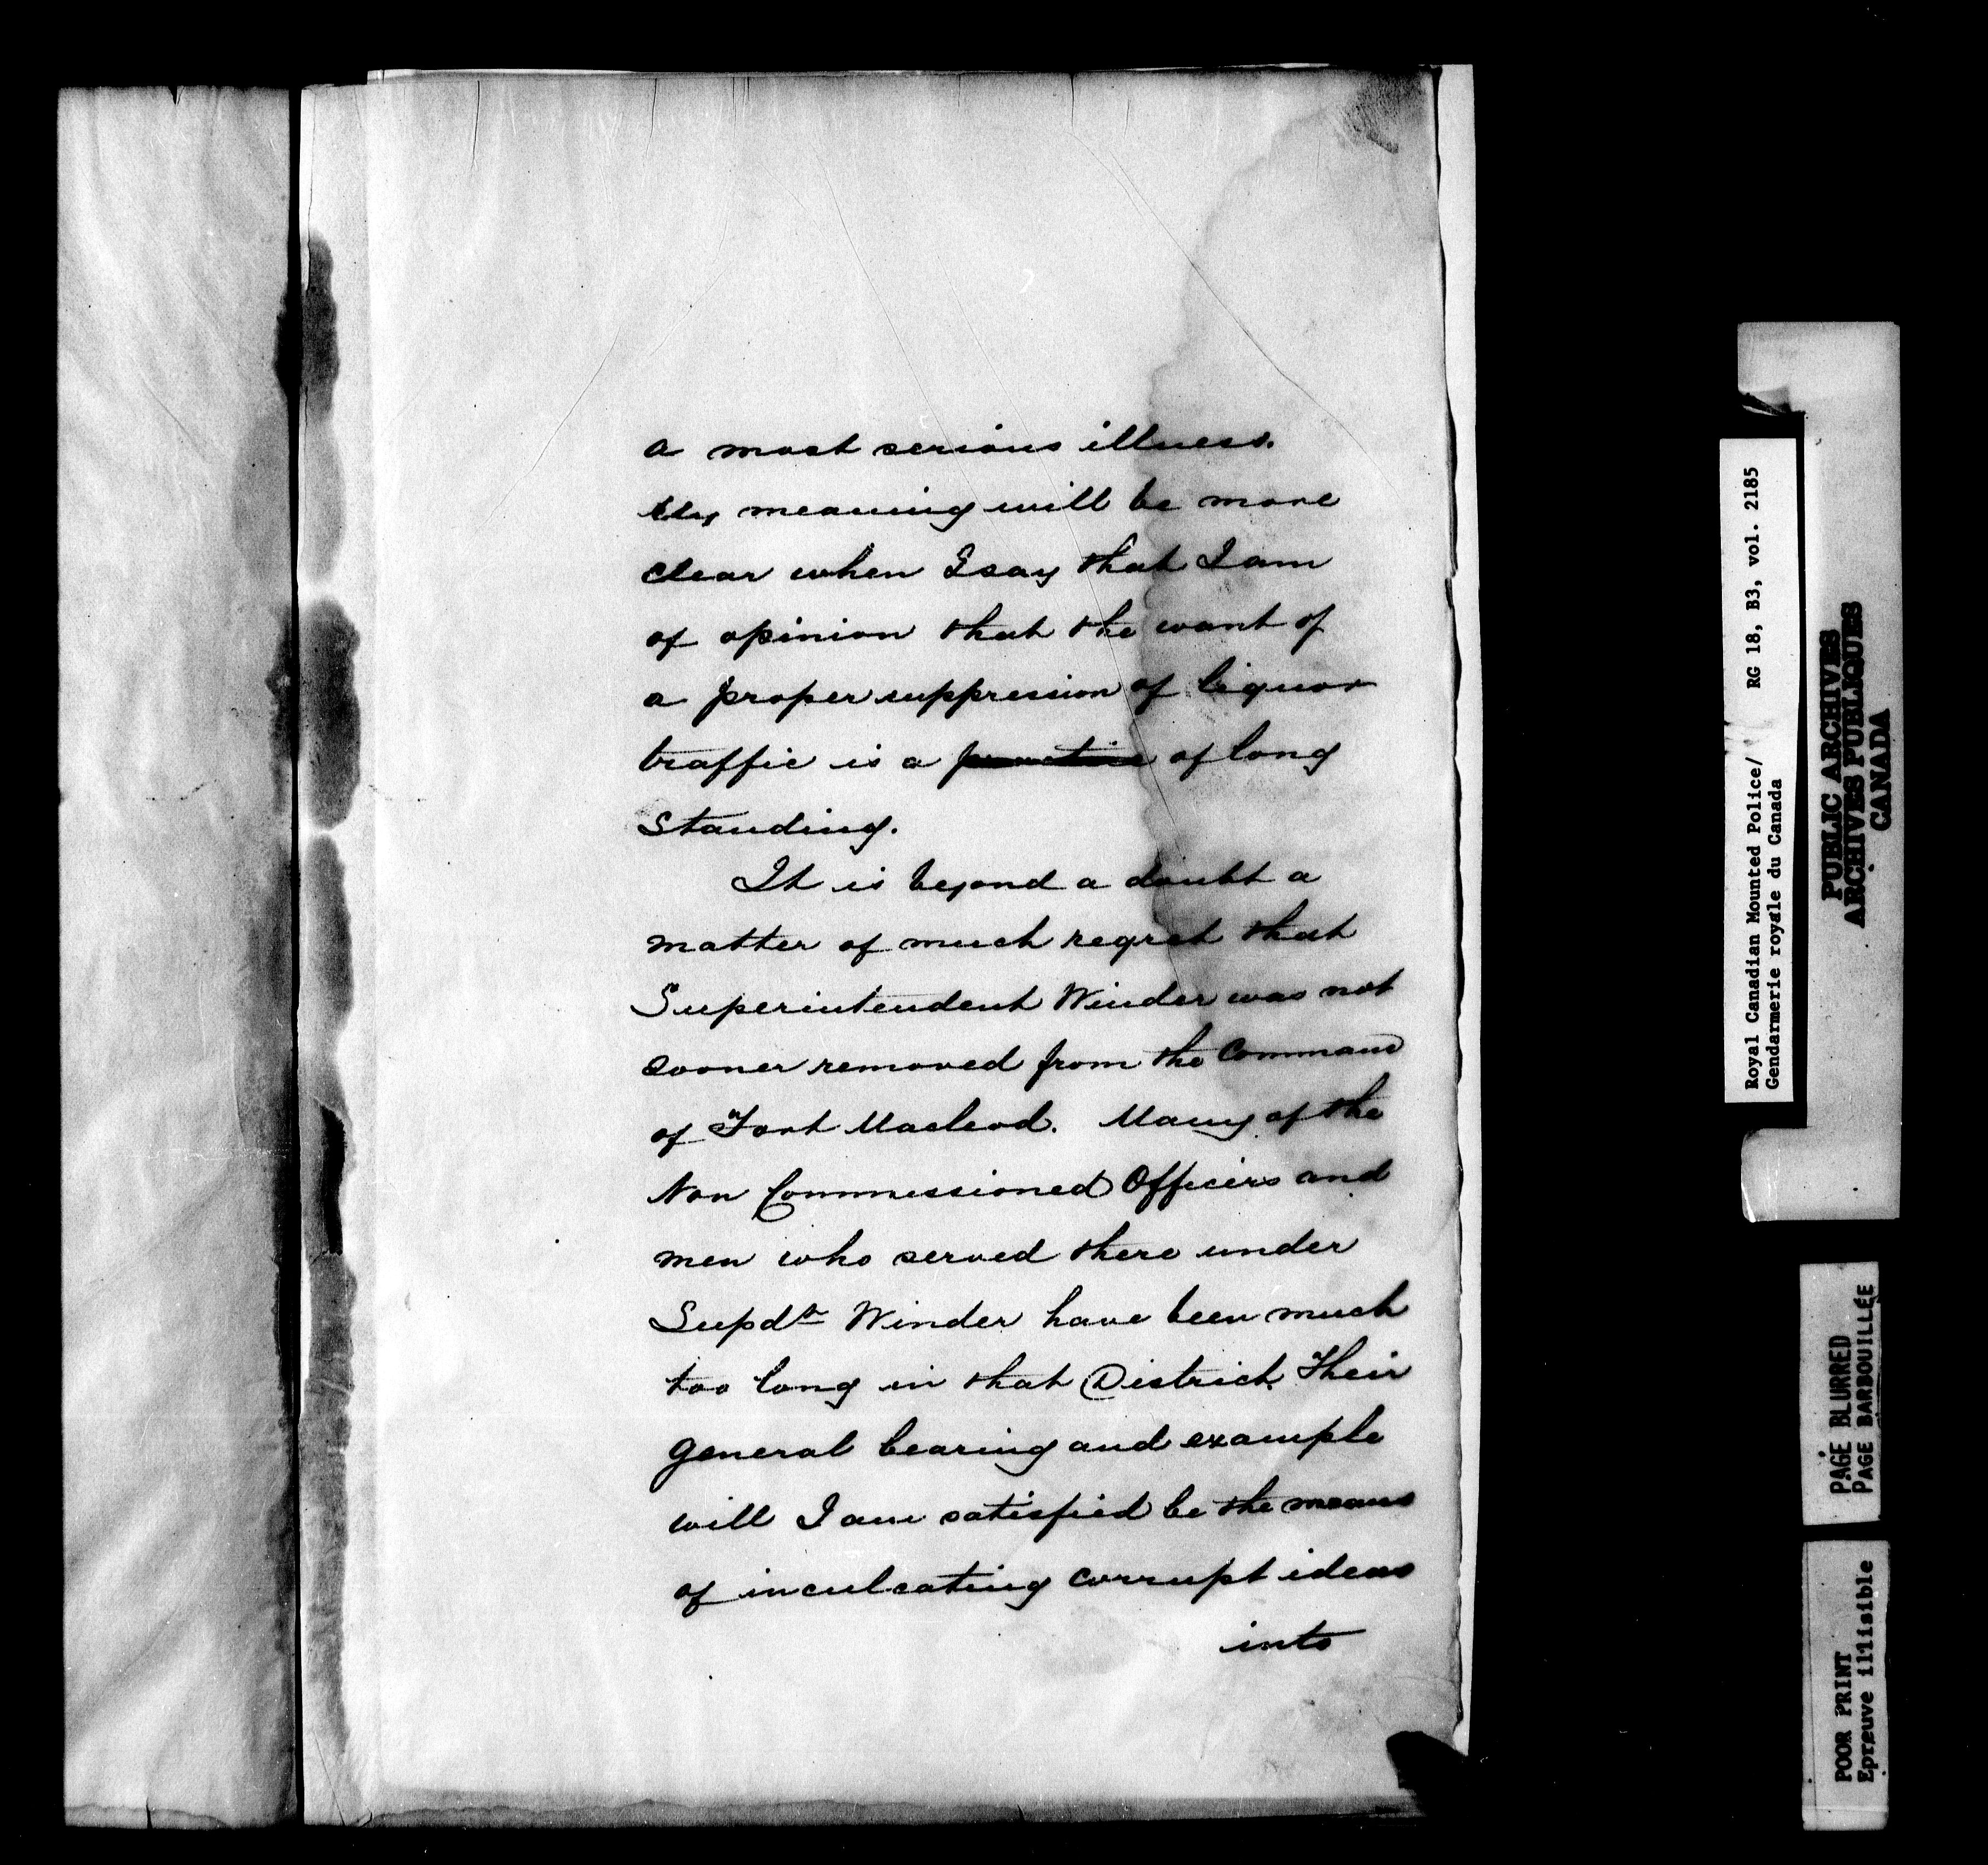 a most serious illness.
My meaning will be more
clear when I say that I am
of opinion that the want of
a proper suppression of liquor
traffic is a practice of long
standing.
It is beyond a doubt a
matter of much regret that
Superintendent Winder was not
sooner removed from the Command
of Fort Macleod. Many of the
Non Commissioned Officers and
men who served there under
Supdt Winder have been much
too long in that District. Their
general bearing and example
will I am satisfied be the means
of inculcating corrupt ideas
into
Royal Canadian Mounted Police/ RG 18, B3, vol. 2185
Gendarmerie royale du Canada
PUBLIC ARCHIVES
ARCHIVES PUBLIQUES
CANADA
PAGE BLURRED
PAGE BARBOUILLÉE
POOR PRINT
Epreuve illisible